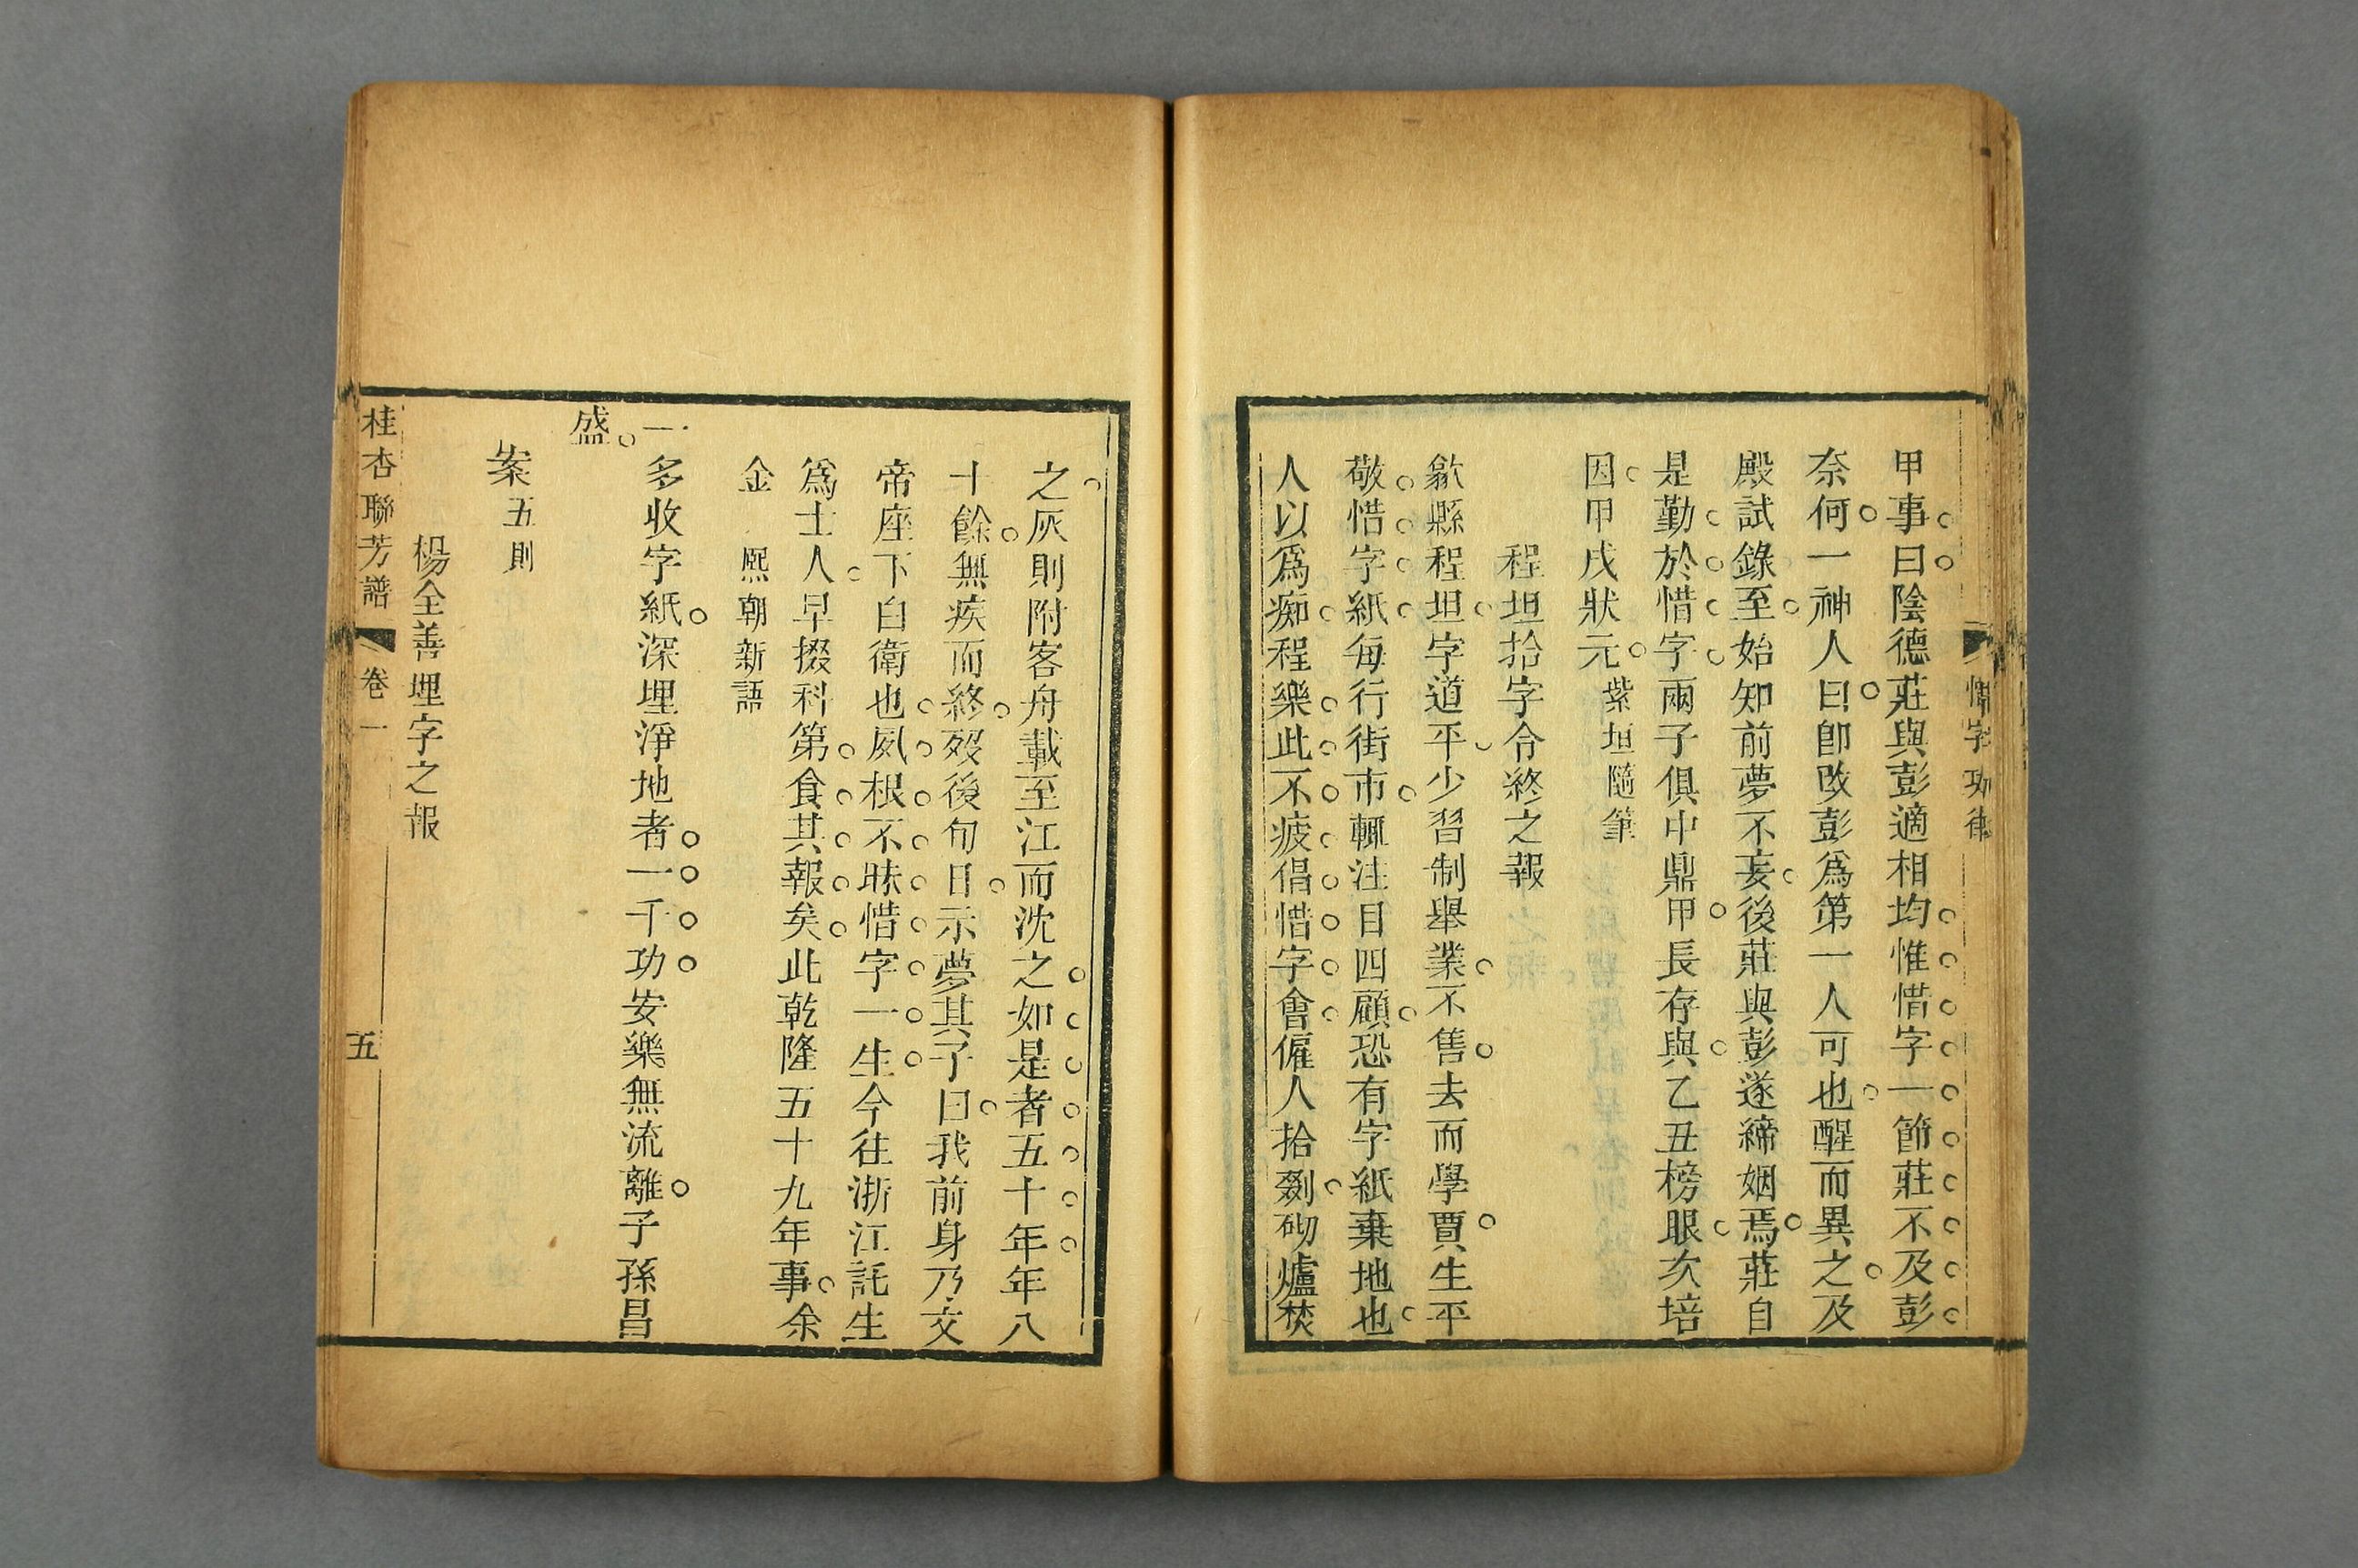 惜字功律
甲事曰陰德莊與彭適相均惟惜字一節莊不及彭
奈何一神人曰卽改彭爲第一人可也醒而異之及
殿試錄至始知前夢不妄後莊與彭遂締姻焉莊自
是勤於惜字兩子俱中鼎甲長存與乙丑榜眼次培
因甲戌狀元紫垣隨筆
程坦拾字令終之報
歙縣程坦字道平少習制舉業不售去而學賈生平
敬惜字紙每行街市輒注目四顧恐有字紙棄地也
人以爲痴程樂此不疲倡惜字會僱人拾剟砌爐焚
之灰則附客舟載至江而沈之如是者五十年年八
十餘無疾而終歿後旬日示夢其子曰我前身乃文
帝座下白衛也夙根不昧惜字一生今往浙江託生
爲士人早掇科第食其報矣此乾隆五十九年事余
金熙朝新語
一多收字紙深埋淨地者一千功安樂無流離子孫昌
盛
案五則
楊全善埋字之報
桂杏聯芳譜 卷一 五